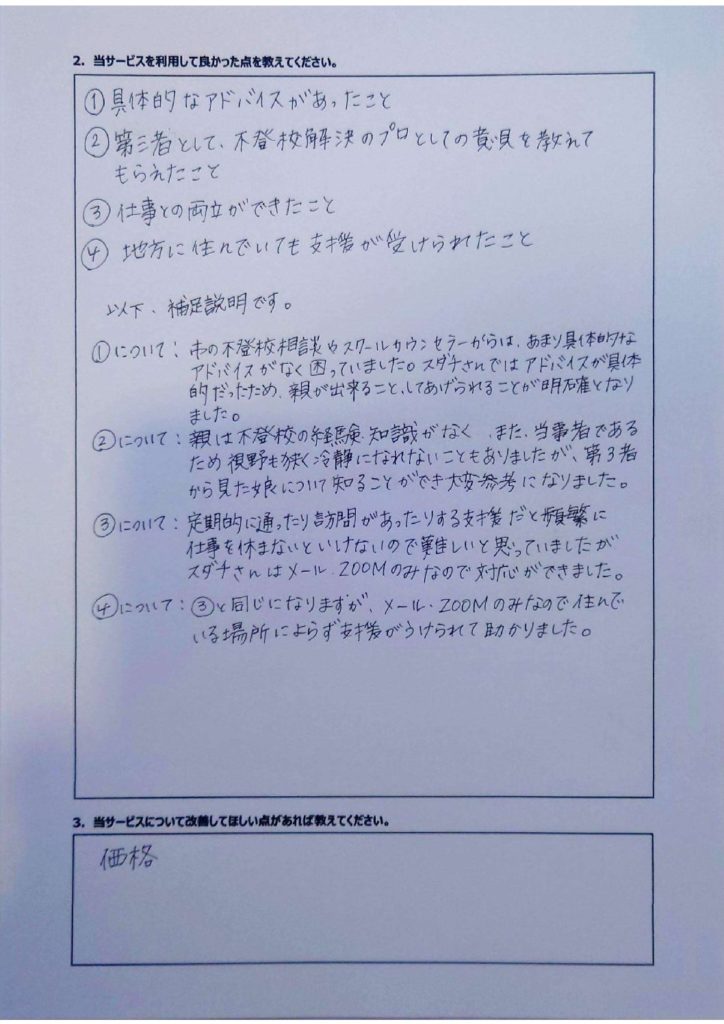 2. 当サービスを利用して良かった点を教えてください。
① 具体的なアドバイスがあったこと
② 第三者として、不登校解決のプロとしての意見を教えて
もらえたこと
③ 仕事との両立ができたこと
④ 地方に住んでいても支援が受けられたこと
以下、補足説明です。
①について：市の不登校相談やスクールカウンセラーからは、あまり具体的な
アドバイスがなく困っていました。スダチさんではアドバイスが具体
的だったため、親が出来ること、してあげられることが明確となり
ました。
②について：親は不登校の経験・知識がなく、また、当事者である
ため視野も狭く冷静になれないこともありましたが、第3者
から見た娘について知ることができ大変参考になりました。
③について：定期的に通ったり訪問があったりする支援だと頻繁に
仕事を休まないといけないので難しいと思っていましたが
スダチさんはメール・ZOOMのみなので対応ができました。
④について：③と同じになりますが、メール・ZOOMのみなので住んで
いる場所によらず支援がうけられて助かりました。
3. 当サービスについて改善してほしい点があれば教えてください。
価格